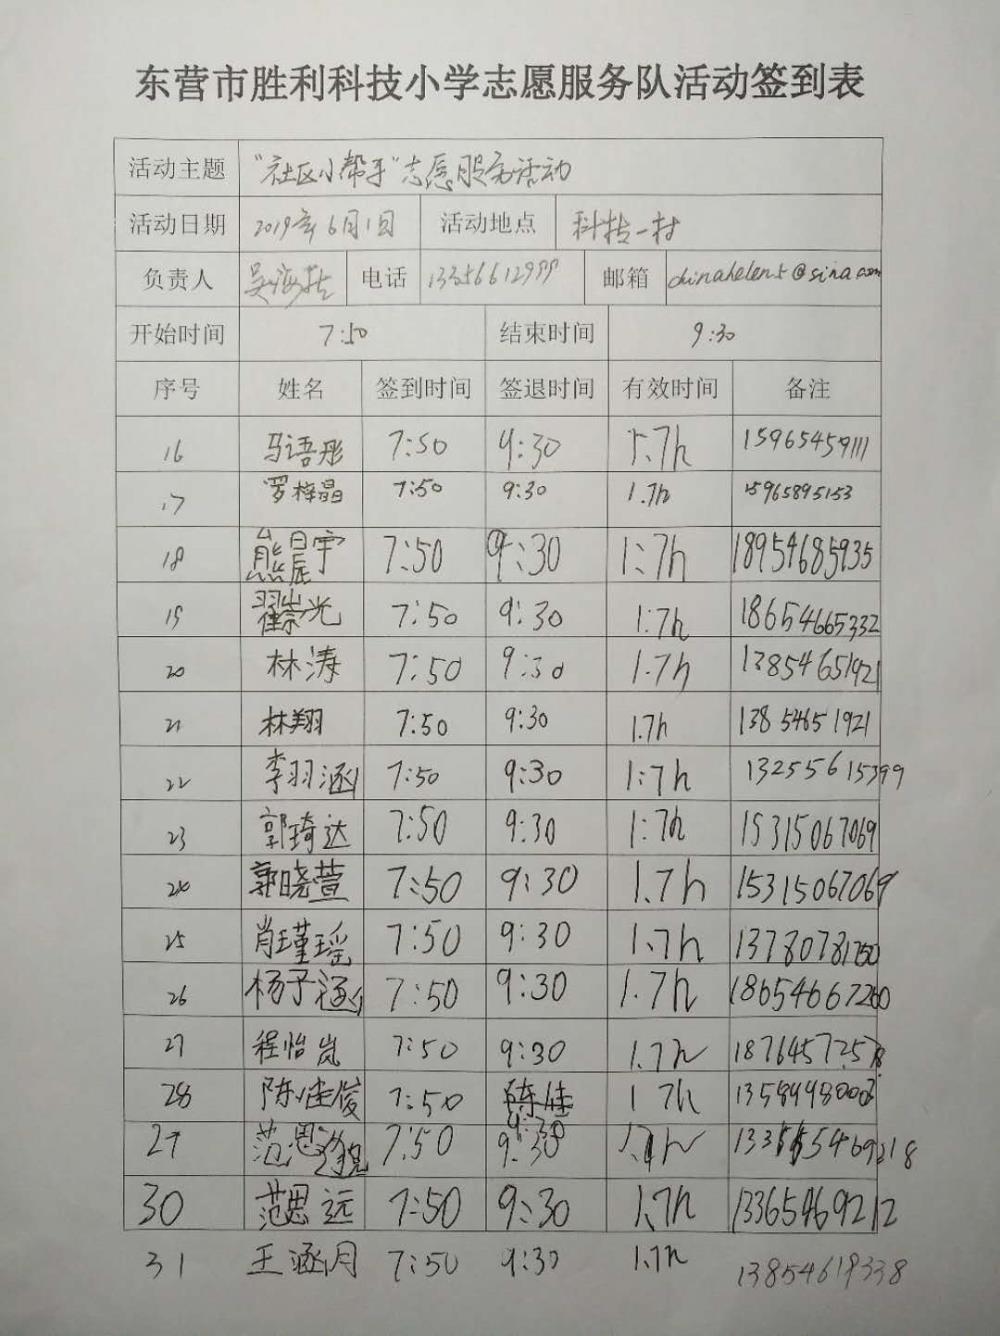 东营市胜利科技小学志愿服务队活动签到表
活动主题 “社区小帮手”志愿服务活动
活动日期 2019年6月1日 活动地点 科技一村
负责人 吴海 电话 13356612999 邮箱 chinahelens@sina.com
开始时间 7:50 结束时间 9:30
序号 姓名 签到时间 签退时间 有效时间 备注
16 马语彤 7:50 9:30 1.7h 15965459111
17 罗梓晶 7:50 9:30 1.7h 15965895153
18 熊晨宇 7:50 9:30 1:7h 18954685935
19 翟崇光 7:50 9:30 1:7h 18654665332
20 林涛 7:50 9:30 1.7h 13854651921
21 林翔 7:50 9:30 1.7h 13854651921
22 李羽涵 7:50 9:30 1:7h 13255615399
23 郭琦达 7:50 9:30 1:7h 15315067069
24 郭晓萱 7:50 9:30 1.7h 15315067069
25 肖瑾瑶 7:50 9:30 1.7h 13780781750
26 杨子涵 7:50 9:30 1.7h 18654667260
27 程怡岚 7:50 9:30 1.7h 18764572578
28 陈佳俊 7:50 9:30 1.7h
29 范思 7:50 9:30 1.7h
30 范思远 7:50 9:30 1.7h 13365469212
31 王涵月 7:50 9:30 1.7h 13854619338